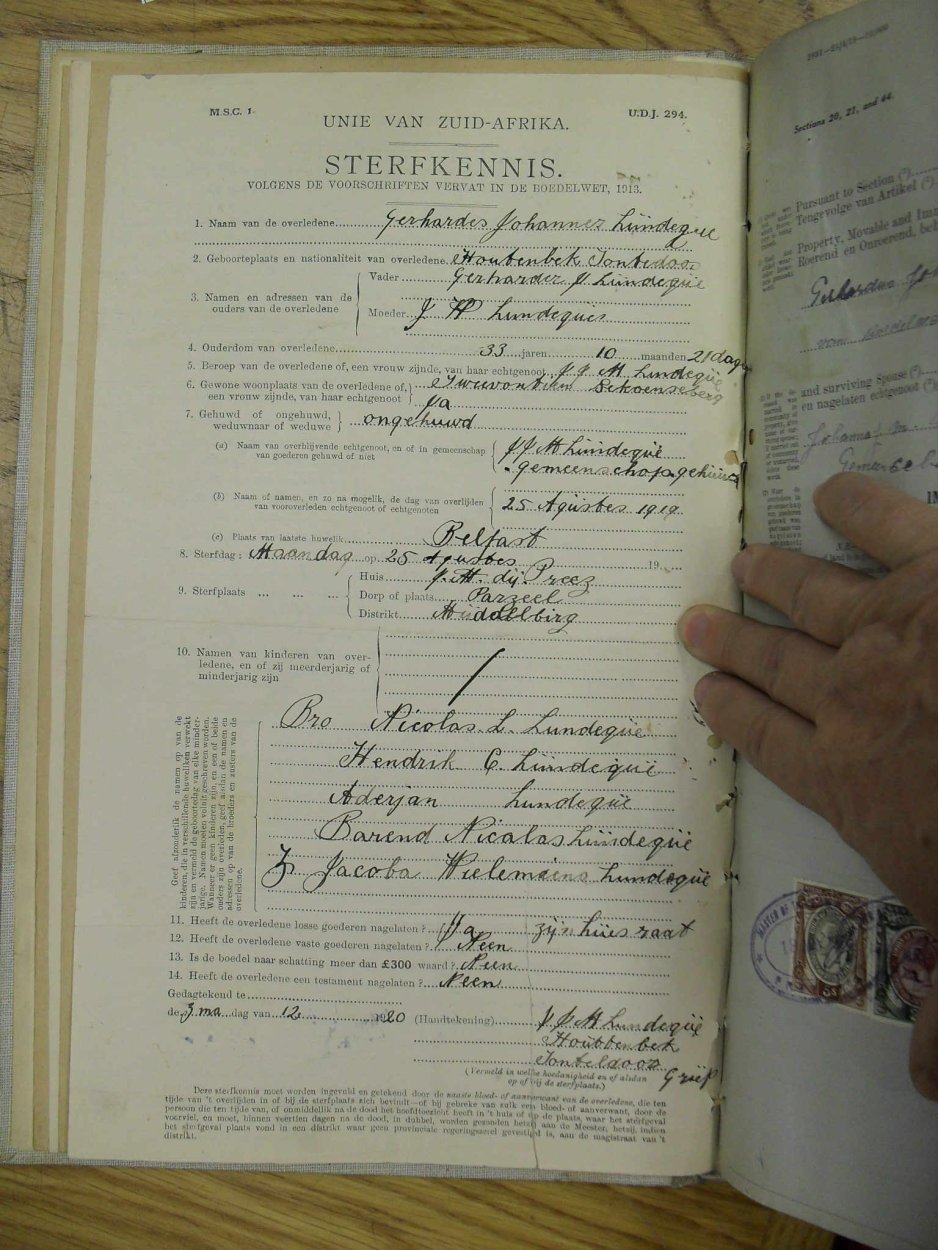 M.S.C. 1.
U.D.J. 294.
UNIE VAN ZUID-AFRIKA.
STERFKENNIS.
VOLGENS DE VOORSCHRIFTEN VERVAT IN DE BOEDELWET, 1913.
1. Naam van de overledene Gerhardes Johannes Lündeqúe
2. Geboorteplaats en nationaliteit van overledene Houtenbek Tonteldoos
3. Namen en adressen van de ouders van de overledene
Vader Gerhardes J Lündeqúe
Moeder J W Lundeques
4. Ouderdom van overledene 33 jaren 10 maanden 21 dag
5. Beroep van de overledene of, een vrouw zijnde, van haar echtgenoot J J M Lundeqúe
6. Gewone woonplaats van de overledene of, een vrouw zijnde, van haar echtgenoot
Schoenseberg
Ja
7. Gehuwd of ongehuwd, weduwnaar of weduwe ongehuwd
(a) Naam van overblijvende echtgenoot, en of in gemeenschap van goederen gehuwd of niet
J J M Lündeqúe
Gemeenschop gehüwd
(b) Naam of namen, en zo na mogelik, de dag van overlijden van vooroverleden echtgenoot of echtgenoten
25 Agüstes 1919
(c) Plaats van laatste huwelik Belfast
8. Sterfdag: Maandag op 25 Agustes 19
9. Sterfplaats ... ... ...
Huis J. M. dü Preez
Dorp of plaats Parzeel
Distrikt Middellbürg
10. Namen van kinderen van overledene, en of zij meerderjarig of minderjarig zijn
/
Geef afzonderlik de namen op van de kinderen, die in verschillende huweliken verwekt zijn en vermeld de geboortedag van elke minderjarige. Namen moeten voluit geschreven worden. Wanneer er geen kinderen zijn, en een of beide ouders zijn overleden, geef alsdan de namen en adressen op van de broeders en zusters van de overledene.
Bro Nicolas L. Lundeqúe
Hendrik C. Lündeqúe
Aderjan Lundeqúe
Barend Nicalas Lündeqúe
Z Jacoba Wielemiens Lundeqúe
11. Heeft de overledene losse goederen nagelaten? Ja zijn hüis raat
12. Heeft de overledene vaste goederen nagelaten? Neen
13. Is de boedel naar schatting meer dan £300 waard? Neen
14. Heeft de overledene een testament nagelaten? Neen
Gedagtekend te
de 3 ma dag van 12 1920 (Handtekening) J J M Lundeqúe
Houtenbek
Tonteldoos
(Vermeld in welke hoedanigheid en of alsdan op of bij de sterfplaats.)
Deze sterfkennis moet worden ingevuld en getekend door de naaste bloed- of aanverwant van de overledene, die ten tijde van 't overlijden in of bij de sterfplaats zich bevindt—of bij gebreke van zulk een bloed- of aanverwant, door de persoon die ten tijde van, of onmiddellik na de dood het hoofdtoezicht heeft in 't huis of op de plaats, waar het sterfgeval voorviel, en moet, binnen veertien dagen na de dood, in dubbel, worden gezonden hetzij aan de Meester, hetzij, indien het sterfgeval plaats vond in een distrikt waar geen provinciale regeringszetel gevestigd is, aan de magistraat van 't distrikt.
Sections 20, 21, and 44.
Pursuant to Section
Tengevolge van Artikel
Property, Movable and
Roerend en Onroerend,
and surviving spouse
en nagelaten echtgenoot